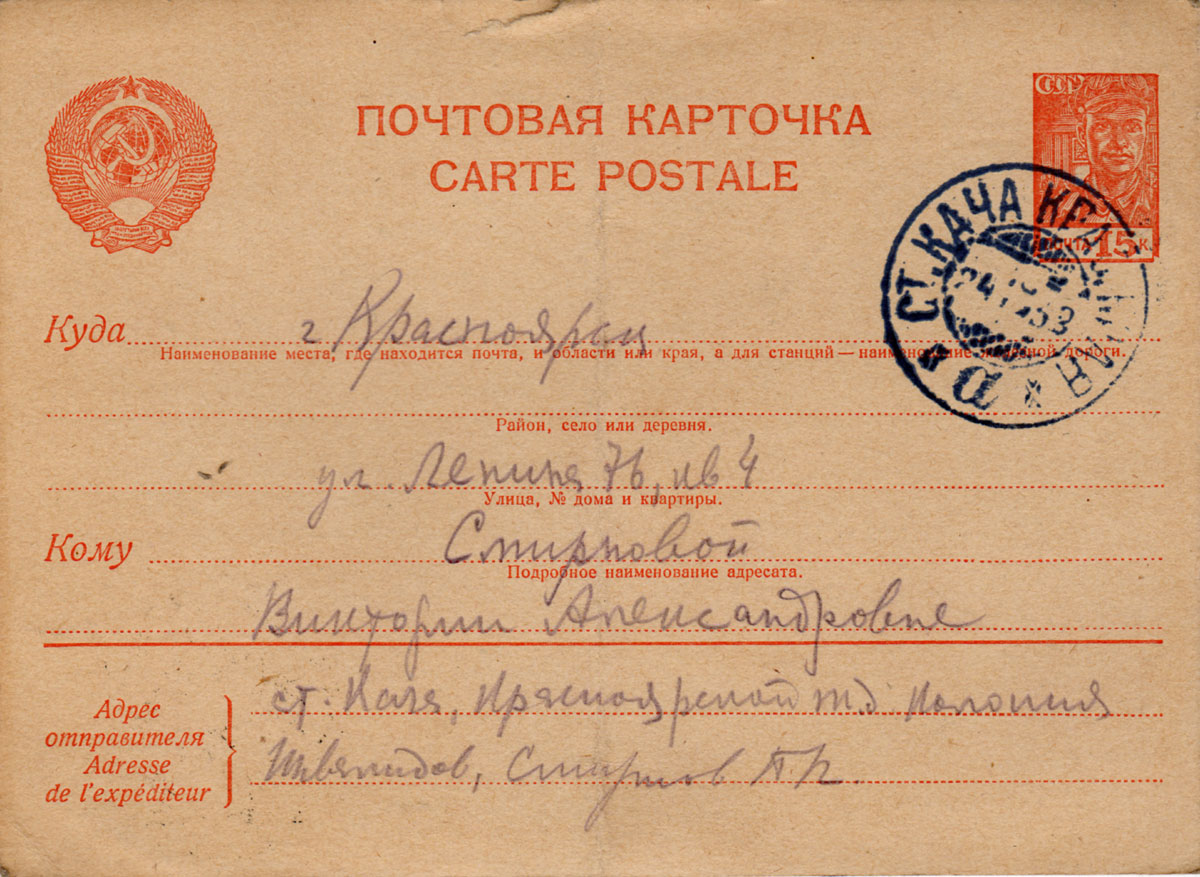 ПОЧТОВАЯ КАРТОЧКА
CARTE POSTALE
СССР
ПОЧТА 15 К.
СТ. КАЧА
Куда г Красноярск
Наименование места, где находится почта, и области или края, а для станций — наименование железной дороги.
Район, село или деревня.
ул. Ленина 76, кв 4
Улица, № дома и квартиры.
Кому Смирновой
Подробное наименование адресата.
Виктории Александровне
Адрес отправителя
Adresse de l'expéditeur
ст. Кача, Красноярской ж.д. Колония
Инвалидов, Смирнов